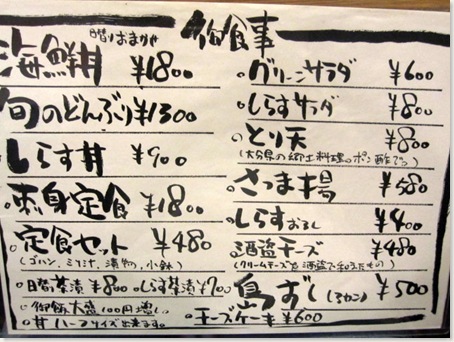 日替りおまかせ
海鮮丼 ¥1800
旬のどんぶり ¥1300
しらす丼 ¥900
赤身定食 ¥1800
定食セット ¥480
(ゴハン、ミソ汁、漬物、小鉢)
日替茶漬 ¥800 しらす茶漬 ¥700
御飯大盛100円増し
丼ハーフサイズ出来ます。
御食事
グリーンサラダ ¥600
しらすサラダ ¥800
とり天 ¥800
(大分県の郷土料理。ポン酢でっ)
さつま揚 ¥580
しらすおろし ¥400
酒盗チーズ ¥480
(クリームチーズを酒盗で和えたもの)
鳥ずし(3カン) ¥500
チーズケーキ ¥600